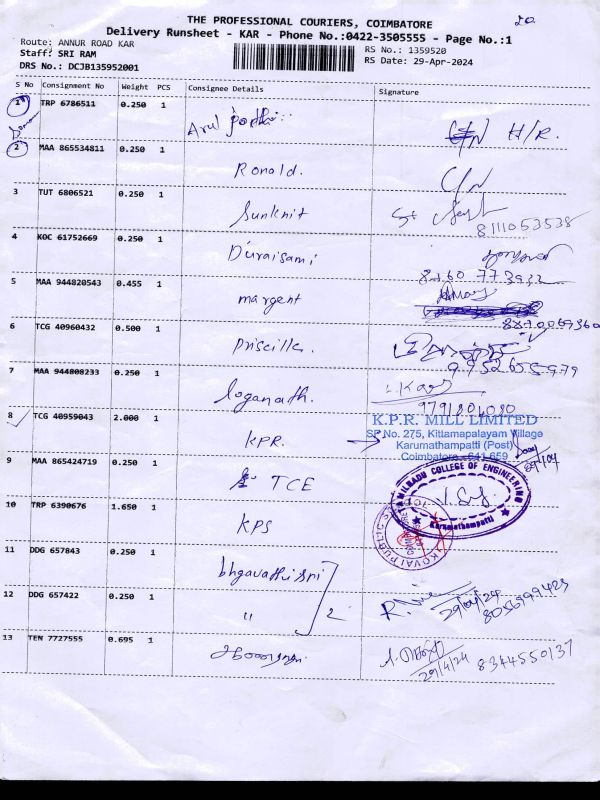 THE PROFESSIONAL COURIERS, COIMBATORE
20
Delivery Runsheet - KAR - Phone No.:0422-3505555 - Page No.:1
Route: ANNUR ROAD KAR
Staff: SRI RAM
DRS No.: DCJB135952001
RS No.: 1359520
RS Date: 29-Apr-2024
S No Consignment No Weight PCS Consignee Details Signature
1 TRP 6786511 0.250 1 Arul H/R.
2 MAA 865534811 0.250 1 Ronald. C/N
3 TUT 6806521 0.250 1 Sunknit
8111053538
4 KOC 61752669 0.250 1 Duraisami
5 MAA 944820543 0.455 1 margent
6 TCG 40960432 0.500 1 Priscilla.
7 MAA 944808233 0.250 1 loganath.
8 TCG 40959043 2.000 1 KPR.
K.P.R. MILL LIMITED
SF No. 275, Kittamapalayam Village
Karumathampatti (Post)
Coimbatore - 641 659
29/04
9 MAA 865424719 0.250 1 TCE
TAMILNADU COLLEGE OF ENGINEERING
Karumathampatti
10 TRP 6390676 1.650 1 KPS
11 DDG 657843 0.250 1 bhgavathi sri
12 DDG 657422 0.250 1 " 2
29/04/24
8056999423
13 TEN 7727555 0.695 1
29/4/24 8344550137